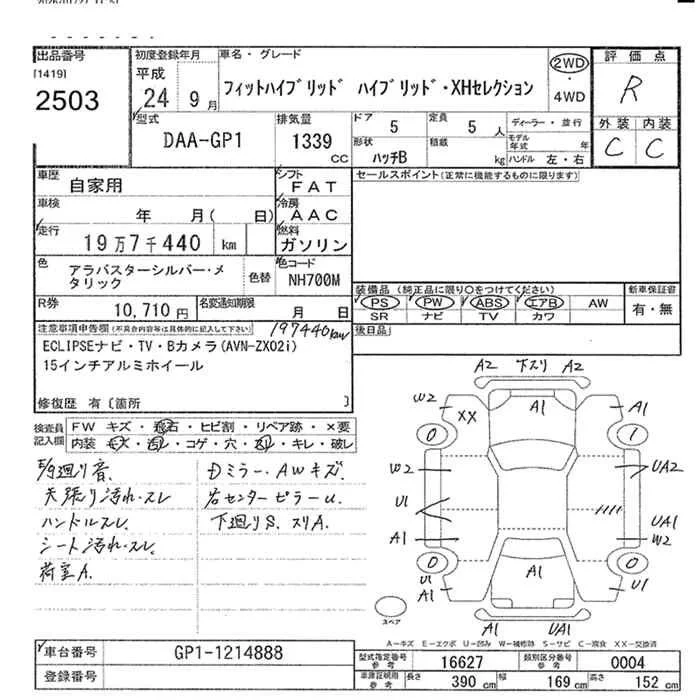 出品番号
[1419]
2503
初度登録年月
平成
24 9月
車名・グレード
フィットハイブリッド ハイブリッド・XHセレクション
2WD
・
4WD
評価点
R
外装 内装
C C
型式
DAA-GP1
排気量
1339
CC
ドア 5
定員 5 人
形状 ハッチB
積載 kg
ディーラー・並行
モデル年式 年
ハンドル 左・右
車歴
自家用
シフト
FAT
車検
年 月( 日)
冷房
AAC
走行
19万7千440 km
燃料
ガソリン
色
アラバスターシルバー・メ
タリック
色替
色コード
NH700M
R券
10,710円
名変通知期限
月 日
セールスポイント(正常に機能するものに限ります)
装備品(純正品に限り○をつけてください)
PS PW ABS エアB AW
SR ナビ TV カワ
新車保証書
有・無
後日品
注意事項申告欄(不具合内容等は具体的に記入して下さい)
197440km
ECLIPSEナビ・TV・Bカメラ(AVN-ZX02i)
15インチアルミホイール
修復歴 有〔箇所 〕
検査員
記入欄
FW キズ・飛石・ヒビ割・リペア跡・×要
内装 キズ・汚レ・コゲ・穴・スレ・キレ・破レ
天張り汚れ・スレ
ハンドルスレ
シート汚れ・スレ
荷室A.
Dミラー・AWキズ.
右センターピラーU.
下廻りS.スリA.
A2 下スリ A2
W2 XX A1 A1
0 1
W2 UA2
U1 UA1
A1 W2
0 0
U1 A1 A1 U1
A1 UA1
スペア
A―キズ E―エクボ U―凹み W―補修跡 S―サビ C―腐食 XX―交換済
車台番号
GP1-1214888
登録番号
型式指定番号
参考
16627
類別区分番号
参考
0004
車庫証明用
参考
長さ 390 cm 幅 169 cm 高さ 152 cm